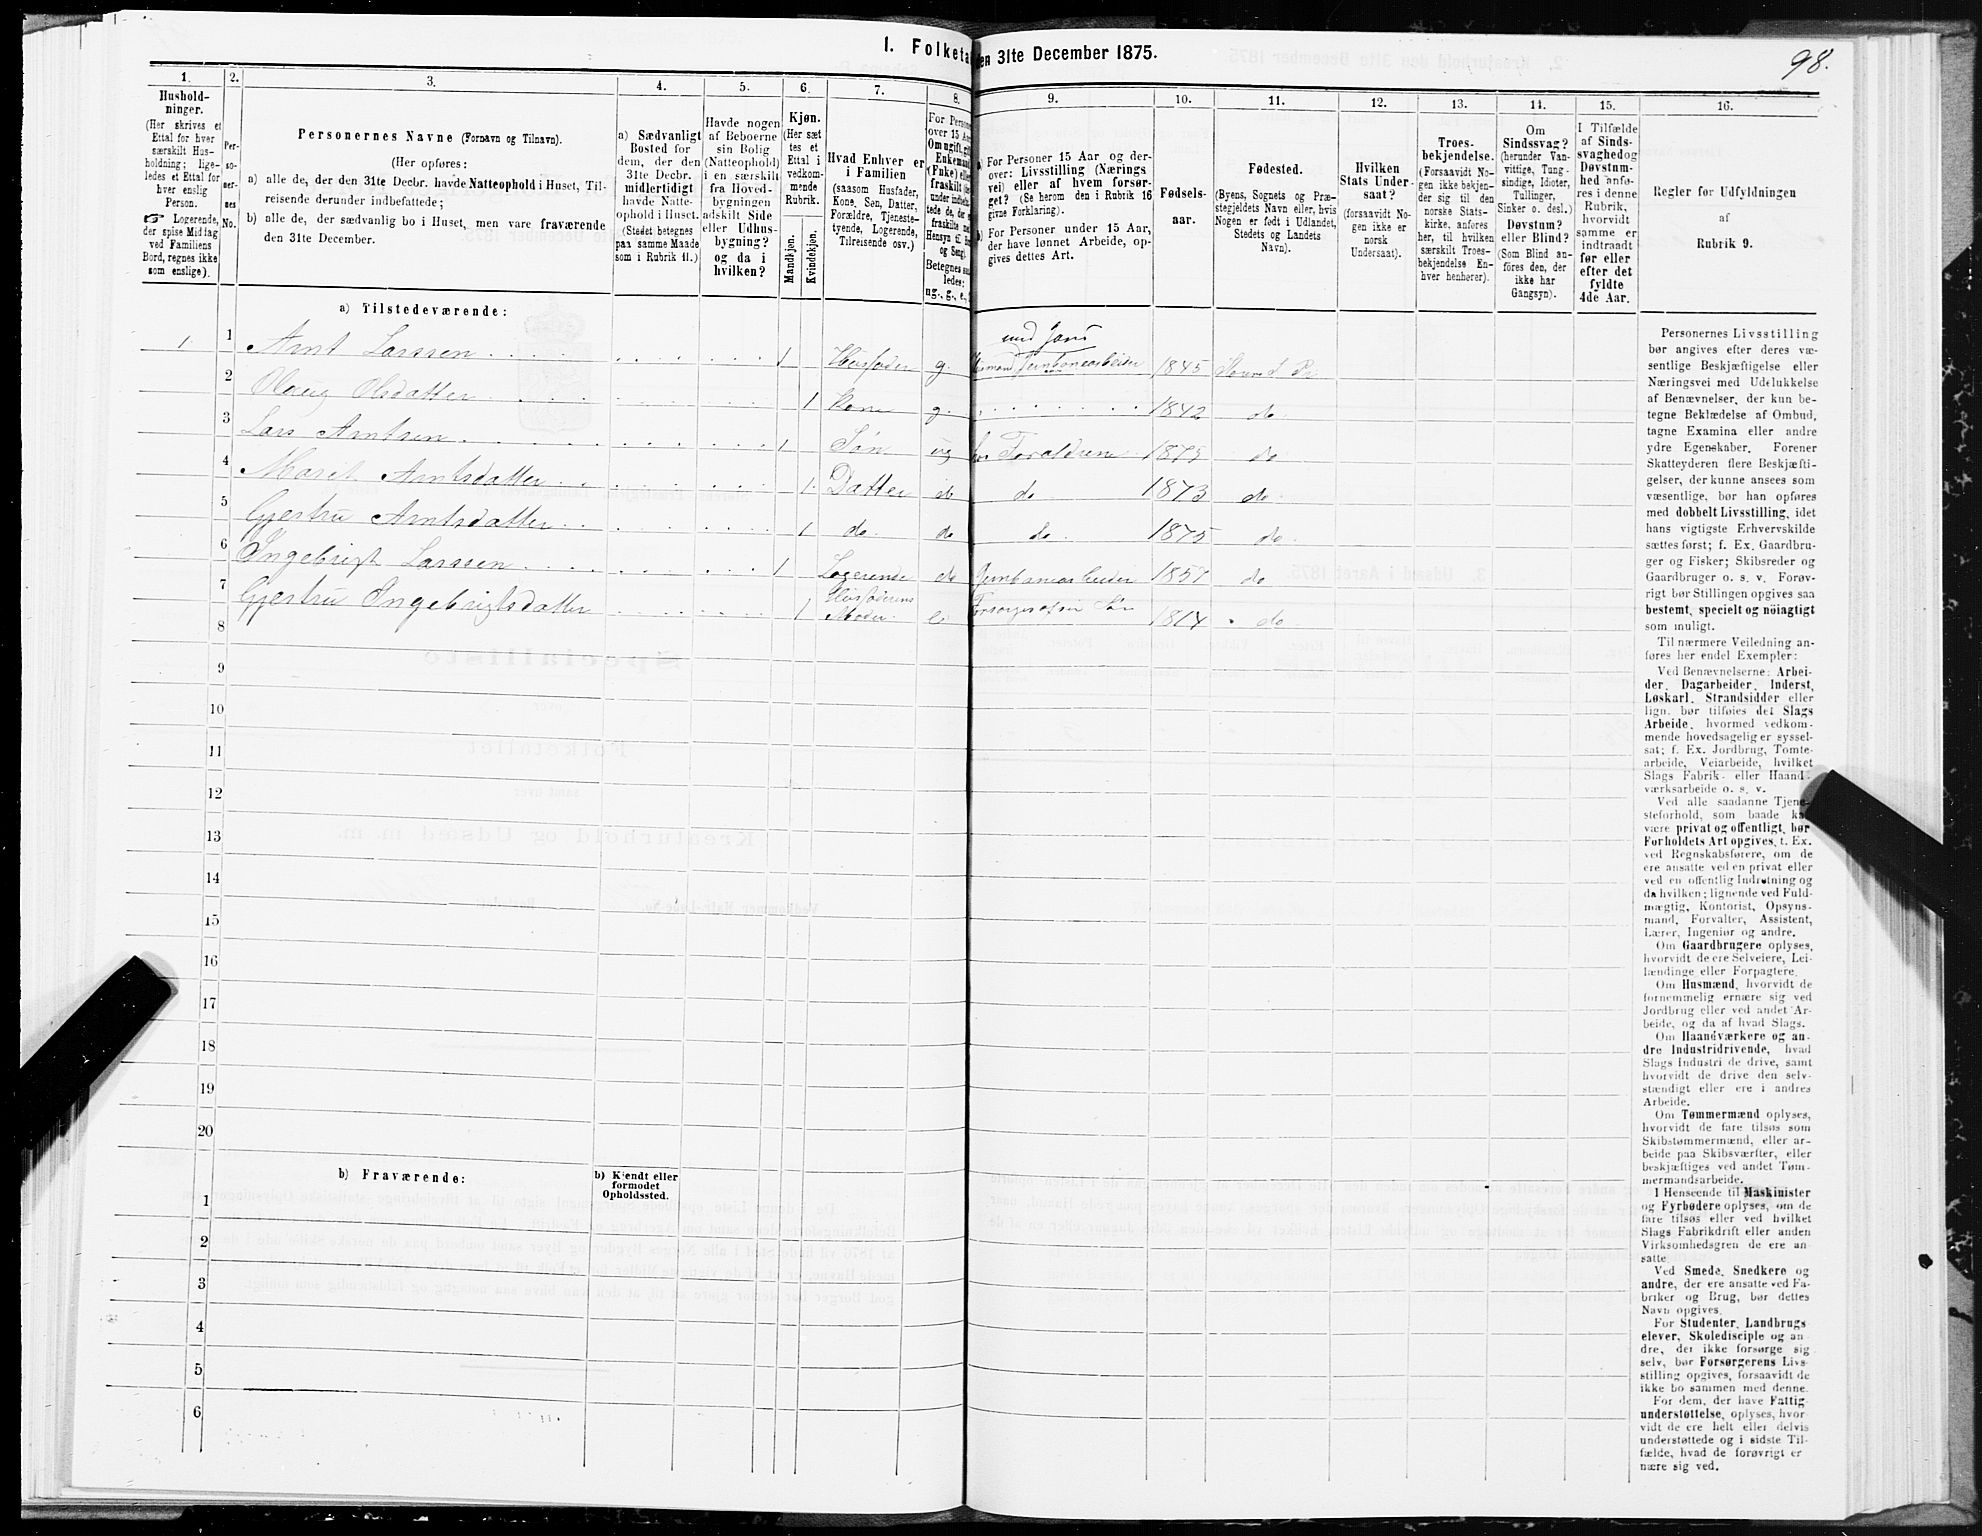 98.
1. Folketa
den 31te December 1875.
1. 2. 3. 4. 5. 6. 7. 8. 9. 10. 11. 12. 13. 14. 15. 16.
Hushold-
ninger.
(Her skrives et
Ettal for hver
særskilt Hus-
holdning; lige-
ledes et Ettal for
hver enslig
Person.
☞ Logerende,
der spise Middag
ved Familiens
Bord, regnes ikke
som enslige).
Per-
so-
ner-
nes
No.
Personernes Navne (Fornavn og Tilnavn).
(Her opføres:
a) alle de, der den 31te Decbr. havde Natteophold i Huset, Til-
reisende derunder indbefattede;
b) alle de, der sædvanlig bo i Huset, men vare fraværende
den 31te December.
a) Sædvanligt
Bosted for
dem, der den
31te Decbr.
midlertidigt
havde Natte-
ophold i Huset.
(Stedet betegnes
paa samme Maade
som i Rubrik 11.)
Havde nogen
af Beboerne
sin Bolig
(Natteophold)
i en særskilt
fra Hoved-
bygningen
adskilt Side
eller Udhus-
bygning?
og da i
hvilken?
Kjøn.
(Her sæt
tes et
Ettal i
vedkom-
mende
Rubrik.
Mandkjøn.
Kvindekjøn.
Hvad Enhver er
i Familien
(saasom Husfader,
Kone, Søn, Datter,
Forældre, Tjeneste-
tyende, Logerende,
Tilreisende osv.)
For Person
over 15 Aar
Om ugift, gift
Enkemand
(Enke) eller
fraskilt
Hensyn til
og Seng).
Betegnes
ledes:
ug., g., e.,
a) For Personer 15 Aar og der-
over: Livsstilling (Nærings
vei) eller af hvem forsør-
get? (Se herom den i Rubrik 16
givne Forklaring).
b) For Personer under 15 Aar,
der have lønnet Arbeide, op-
gives dettes Art.
Fødsels-
aar.
Fødested.
(Byens, Sognets og Præ-
stegjeldets Navn eller, hvis
Nogen er født i Udlandet,
Stedets og Landets
Navn).
Hvilken
Stats Under-
saat?
(forsaavidt No-
gen ikke er
norsk
Undersaat).
Troes-
bekjendelse.
(Forsaavidt No-
gen ikke bekjen-
der sig til den
norske Stats-
kirke, anføres
her, til hvilken
særskilt Troes-
bekjendelse En-
hver henhører).
Om
Sindssvag?
(herunder Van-
vittige, Tung-
sindige, Idioter,
Tullinger,
Sinker o. desl.)
Døvstum?
eller Blind?
(Som Blind an-
føres den, der
ikke har
Gangsyn).
I Tilfælde
af Sinds-
svaghed og
Døvstum-
hed anfø-
res i denne
Rubrik,
hvorvidt
samme er
indtraadt
før eller
efter det
fyldte
4de Aar.
Regler for Udfyldningen
af
Rubrik 9.
a) Tilstedeværende:
med Jord
1 1 Arnt Larssen 1 Husfader g. Husmand Jernbanearbeider 1845 Pr
2 Oleug Olsdatter 1 Kone g. 1842 do
3 Lars Arntsen 1 Søn ug hos Forældrene 1875 do
4 Marit Arntsdatter 1 Datter do do 1873 do
5 Gjertru Arntsdatter 1 do do do 1875 do
6 Ingebrigt Larssen 1 Logerende do Jernbanearbeider 1857 do
7 Gjertru Ingebrigtsdatter 1 Husfaderens Moder e Forsørges af sin Søn 1814 do
8
9
10
11
12
13
14
15
16
17
18
19
20
b) Fraværende:
b) Kjendt eller
formodet
Opholdssted.
1
2
3
4
5
6
Personernes Livsstilling
bør angives efter deres væ-
sentlige Beskjæftigelse eller
Næringsvei med Udelukkelse
af Benævnelser, der kun be-
tegne Beklædelse af Ombud,
tagne Examina eller andre
ydre Egenskaber. Forener
Skatteyderen flere Beskjæfti-
gelser, der kunne ansees som
væsentlige, bør han opføres
med dobbelt Livsstilling, idet
hans vigtigste Erhvervskilde
sættes først; f. Ex. Gaardbru-
ger og Fisker; Skibsreder og
Gaardbruger o. s. v. Forøv-
rigt bør Stillingen opgives saa
bestemt, specielt og nöiagtigt
som muligt.
Til nærmere Veiledning an-
føres her endel Exempler:
Ved Benævnelserne: Arbei-
der, Dagarbeider, Inderst,
Løskarl, Strandsidder eller
lign. bør tilføies det Slags
Arbeide, hvormed vedkom-
mende hovedsagelig er syssel-
sat; f. Ex. Jordbrug, Tomte-
arbeide, Veiarbeide, hvilket
Slags Fabrik- eller Haand-
værksarbeide o. s. v.
Ved alle saadanne Tjene-
steforhold, som baade kan
være privat og offentligt, bør
Forholdets Art opgives, t. Ex.
ved Regnskabsførere, om de
ere ansatte ved en privat eller
ved en offentlig Indretning og
da hvilken; lignende ved Fuld-
mægtig, Kontorist, Opsyns-
mand, Forvalter, Assistent,
Lærer, Ingeniør og andre.
Om Gaardbrugere oplyses,
hvorvidt de ere Selveiere, Lei-
lændinge eller Forpagtere.
Om Husmænd, hvorvidt de
fornemmelig ernære sig ved
Jordbrug eller ved andet Ar-
beide, og da af hvad Slags.
Om Haandværkere og an-
dre Industridrivende, hvad
Slags Industri de drive, samt
hvorvidt de drive den selv-
stændigt eller ere i andres
Arbeide.
Om Tømmermænd oplyses,
hvorvidt de fare tilsøs som
Skibstømmermænd, eller ar-
beide paa Skibsværfter, eller
beskjæftiges ved andet Tøm-
mermandsarbeide.
I Henseende til Maskinister
og Fyrbødere oplyses, om de
fare tilsøs eller ved hvilket
Slags Fabrikdrift eller anden
Virksomhedsgren de ere an-
satte.
Ved Smede, Snedkere og
andre, der ere ansatte ved Fa-
briker og Brug, bør dettes
Navn opgives.
For Studenter, Landbrugs
elever, Skoledisciple og an-
dre, der ikke forsørge sig
selv, bør Forsørgerens Livs-
stilling opgives, forsaavidt de
ikke bo sammen med denne.
For dem, der have Fattig-
understøttelse, oplyses, hvor-
vidt de ere helt eller delvis
understøttede og i sidste Til-
fælde, hvad de forøvrigt er
nære sig ved.